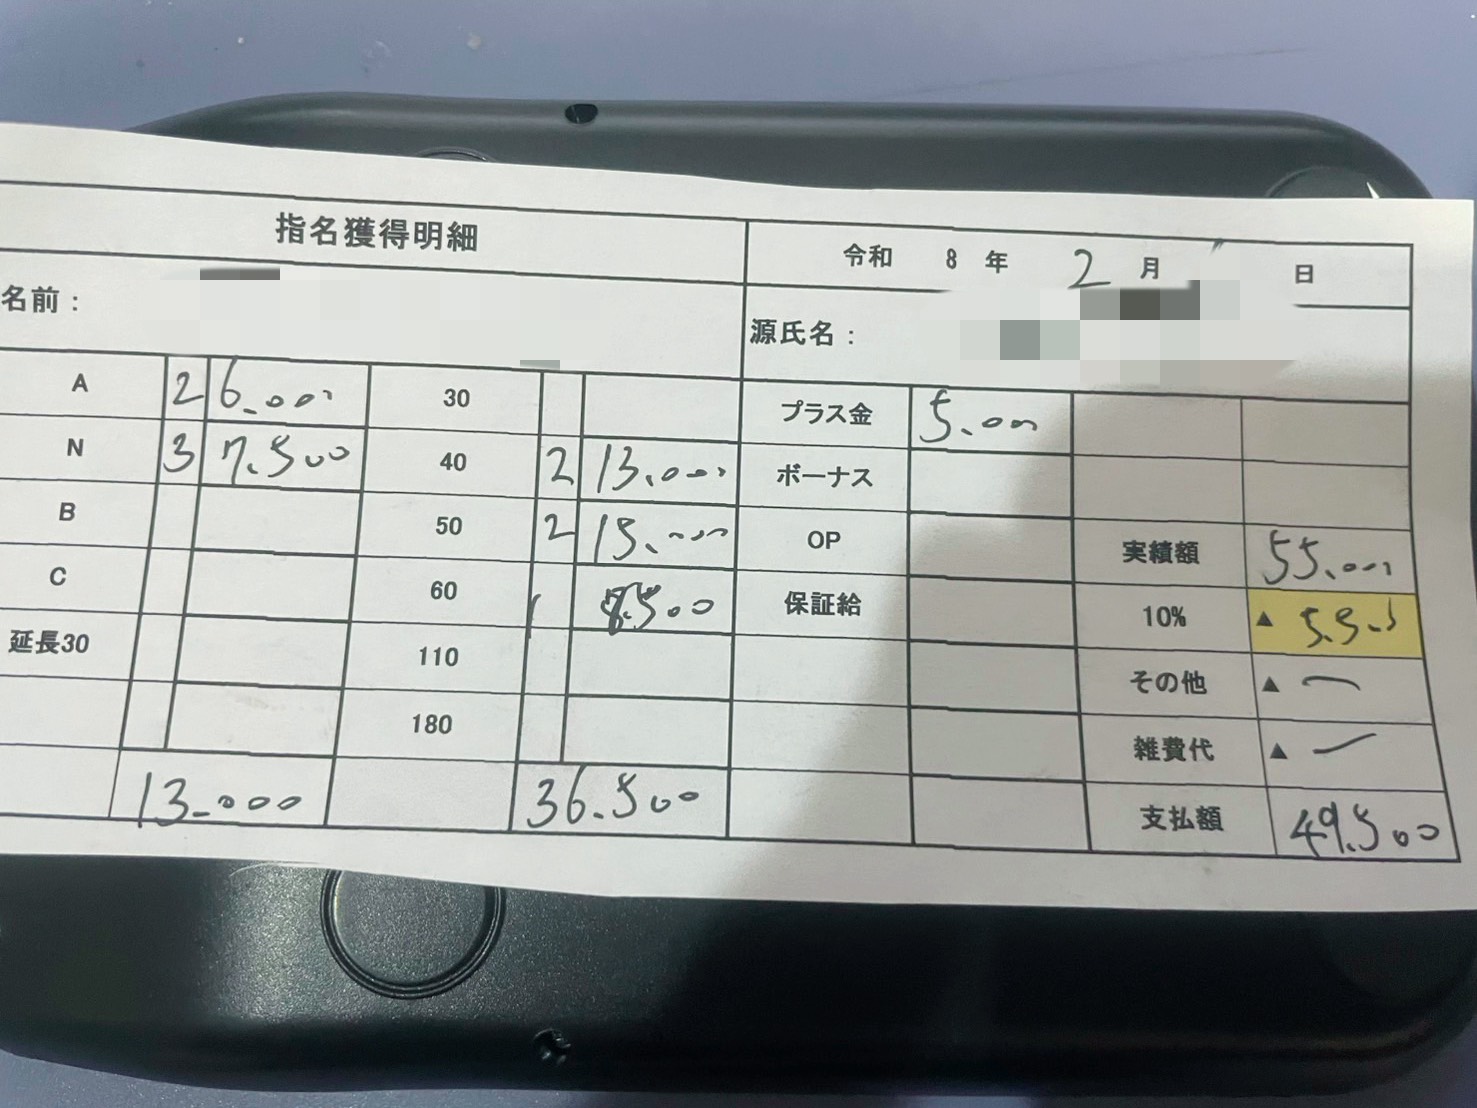 指名獲得明細
令和 8 年 2 月 日
名前：
源氏名：
A 2 6.000 30 プラス金 5.000
N 3 7.500 40 2 13.000 ボーナス
B 50 2 15.000 OP 実績額 55.000
C 60 1 8.500 保証給 10% ▲ 5.500
延長30 110 その他 ▲ ー
180 雑費代 ▲ ー
13.000 36.500 支払額 49.500